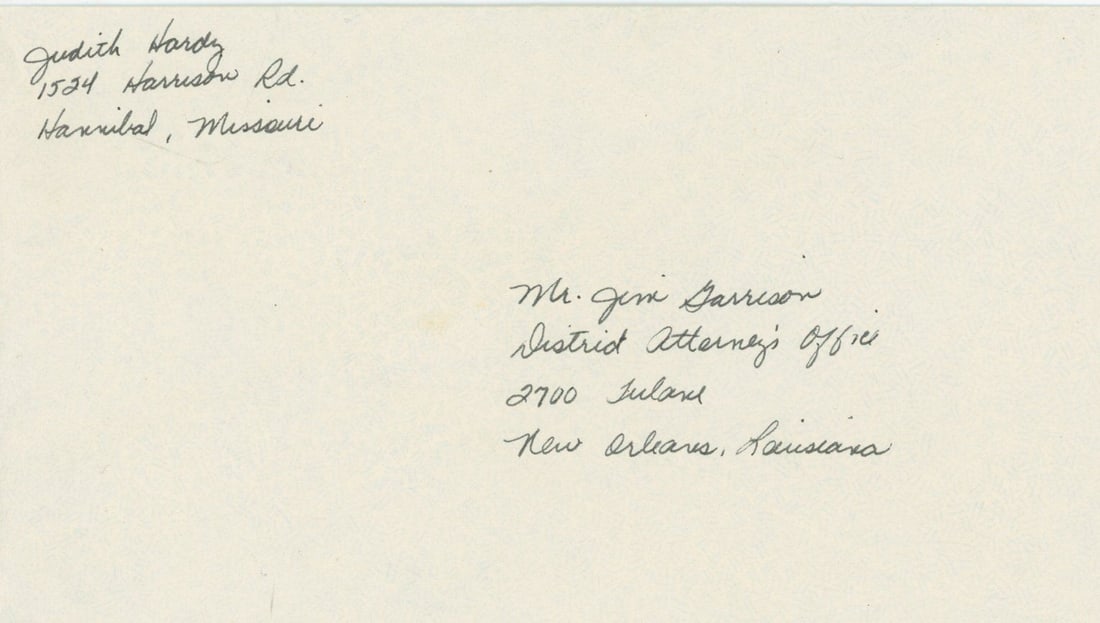 Judith Hardy
1524 Harrison Rd.
Hannibal, Missouri
Mr. Jim Garrison
District Attorney's Office
2700 Tulane
New Orleans, Louisiana